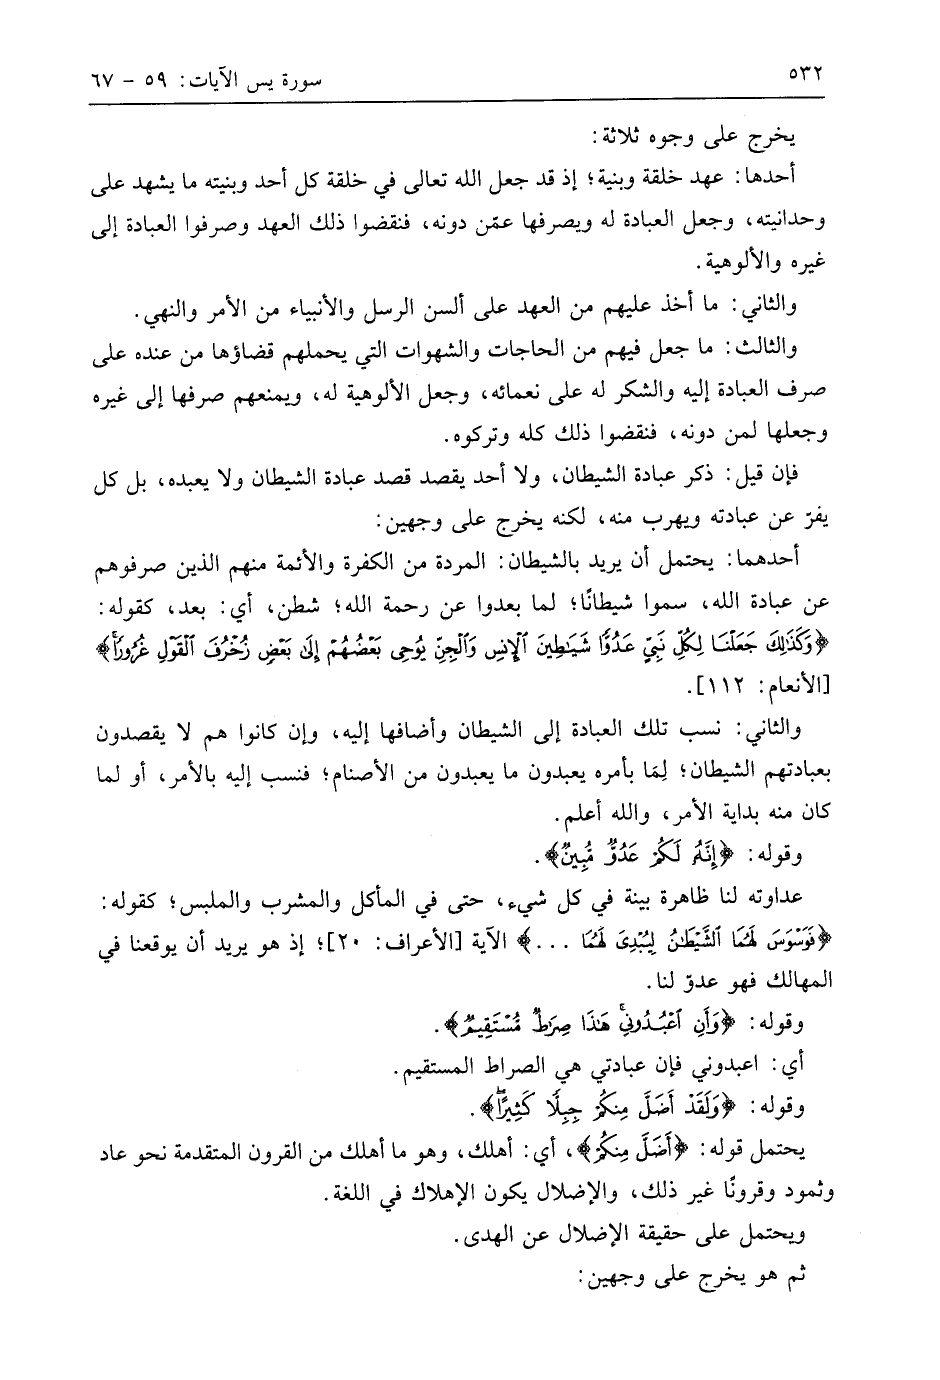 ٥٣٢
سورة يس الآيات: ٥٩ - ٦٧
يخرج على وجوه ثلاثة:
أحدها: عهد خلقة وبنية؛ إذ قد جعل الله تعالى في خلقة كل أحد وبنيته ما يشهد على
وحدانيته، وجعل العبادة له ويصرفها عمّن دونه، فنقضوا ذلك العهد وصرفوا العبادة إلى
غيره والألوهية.
والثاني: ما أخذ عليهم من العهد على ألسن الرسل والأنبياء من الأمر والنهي.
والثالث: ما جعل فيهم من الحاجات والشهوات التي يحملهم قضاؤها من عنده على
صرف العبادة إليه والشكر له على نعمائه، وجعل الألوهية له، ويمنعهم صرفها إلى غيره
وجعلها لمن دونه، فنقضوا ذلك كله وتركوه.
فإن قيل: ذكر عبادة الشيطان، ولا أحد يقصد قصد عبادة الشيطان ولا يعبده، بل كل
يفرّ عن عبادته ويهرب منه، لكنه يخرج على وجهين:
أحدهما: يحتمل أن يريد بالشيطان: المردة من الكفرة والأئمة منهم الذين صرفوهم
عن عبادة الله، سموا شيطانًا؛ لما بعدوا عن رحمة الله؛ شطن، أي: بعد، كقوله:
﴿وَكَذَٰلِكَ جَعَلْنَا لِكُلِّ نَبِيٍّ عَدُوًّا شَيَٰطِينَ ٱلْإِنسِ وَٱلْجِنِّ يُوحِى بَعْضُهُمْ إِلَىٰ بَعْضٍ زُخْرُفَ ٱلْقَوْلِ غُرُورًاۚ﴾
[الأنعام: ١١٢].
والثاني: نسب تلك العبادة إلى الشيطان وأضافها إليه، وإن كانوا هم لا يقصدون
بعبادتهم الشيطان؛ لِمَا بأمره يعبدون ما يعبدون من الأصنام؛ فنسب إليه بالأمر، أو لما
كان منه بداية الأمر، والله أعلم.
وقوله: ﴿إِنَّهُۥ لَكُمْ عَدُوٌّ مُّبِينٌ﴾.
عداوته لنا ظاهرة بينة في كل شيء، حتى في المأكل والمشرب والملبس؛ كقوله:
﴿فَوَسْوَسَ لَهُمَا ٱلشَّيْطَٰنُ لِيُبْدِىَ لَهُمَا ...﴾ الآية [الأعراف: ٢٠]؛ إذ هو يريد أن يوقعنا في
المهالك فهو عدوّ لنا.
وقوله: ﴿وَأَنِ ٱعْبُدُونِىۚ هَٰذَا صِرَٰطٌ مُّسْتَقِيمٌ﴾.
أي: اعبدوني فإن عبادتي هي الصراط المستقيم.
وقوله: ﴿وَلَقَدْ أَضَلَّ مِنكُمْ جِبِلًّا كَثِيرًاۖ﴾.
يحتمل قوله: ﴿أَضَلَّ مِنكُمْ﴾، أي: أهلك، وهو ما أهلك من القرون المتقدمة نحو عاد
وثمود وقرونًا غير ذلك، والإضلال يكون الإهلاك في اللغة.
ويحتمل على حقيقة الإضلال عن الهدى.
ثم هو يخرج على وجهين: